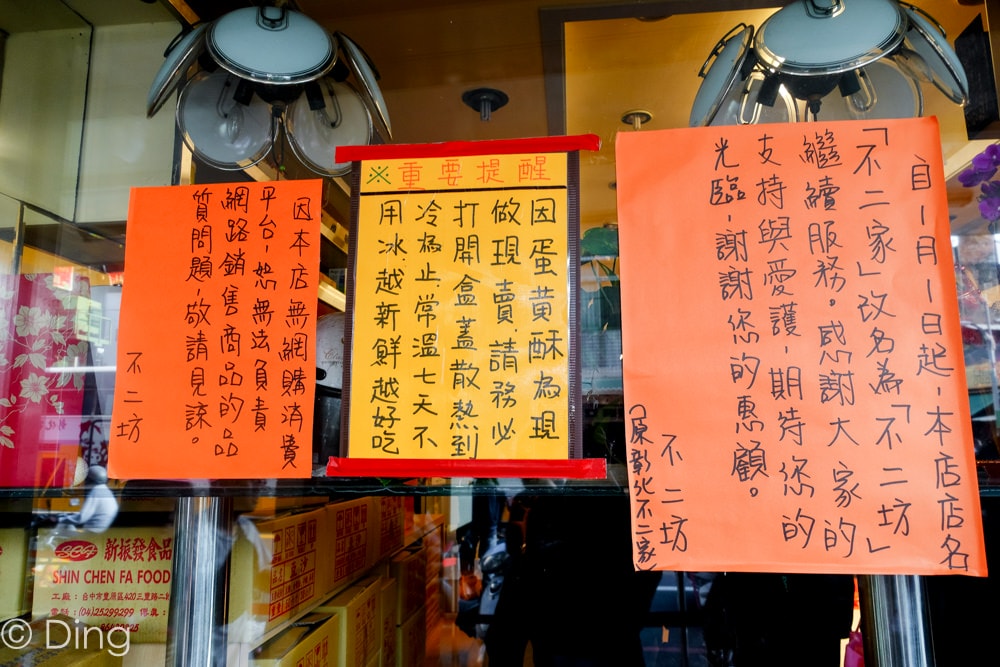 自一月一日起，本店店名
「不二家」改名為「不二坊」
繼續服務。感謝大家的
支持與愛護，期待您的
光臨，謝謝您的惠顧。
不二坊
（原彰化不二家）
※重要提醒
因蛋黃酥為現
做現賣，請務必
打開盒蓋散熱到
冷為止，常溫七天不
用冰越新鮮越好吃
因本店無網購消費
平台，恕無法負責
網路銷售商品的品
質問題，敬請見諒。
不二坊
新振發食品
SHIN CHEN FA FOOD
工廠：台中市豐原區420三豐路二
電話：(04)25299299 傳真：
© Ding